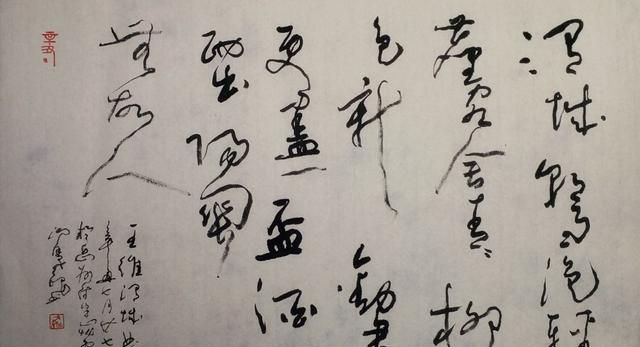 渭城朝雨浥輕
塵客舍青青柳
色新勸君
更盡一盃酒
西出陽關
無故人
王維渭城曲
辛丑七月廿七